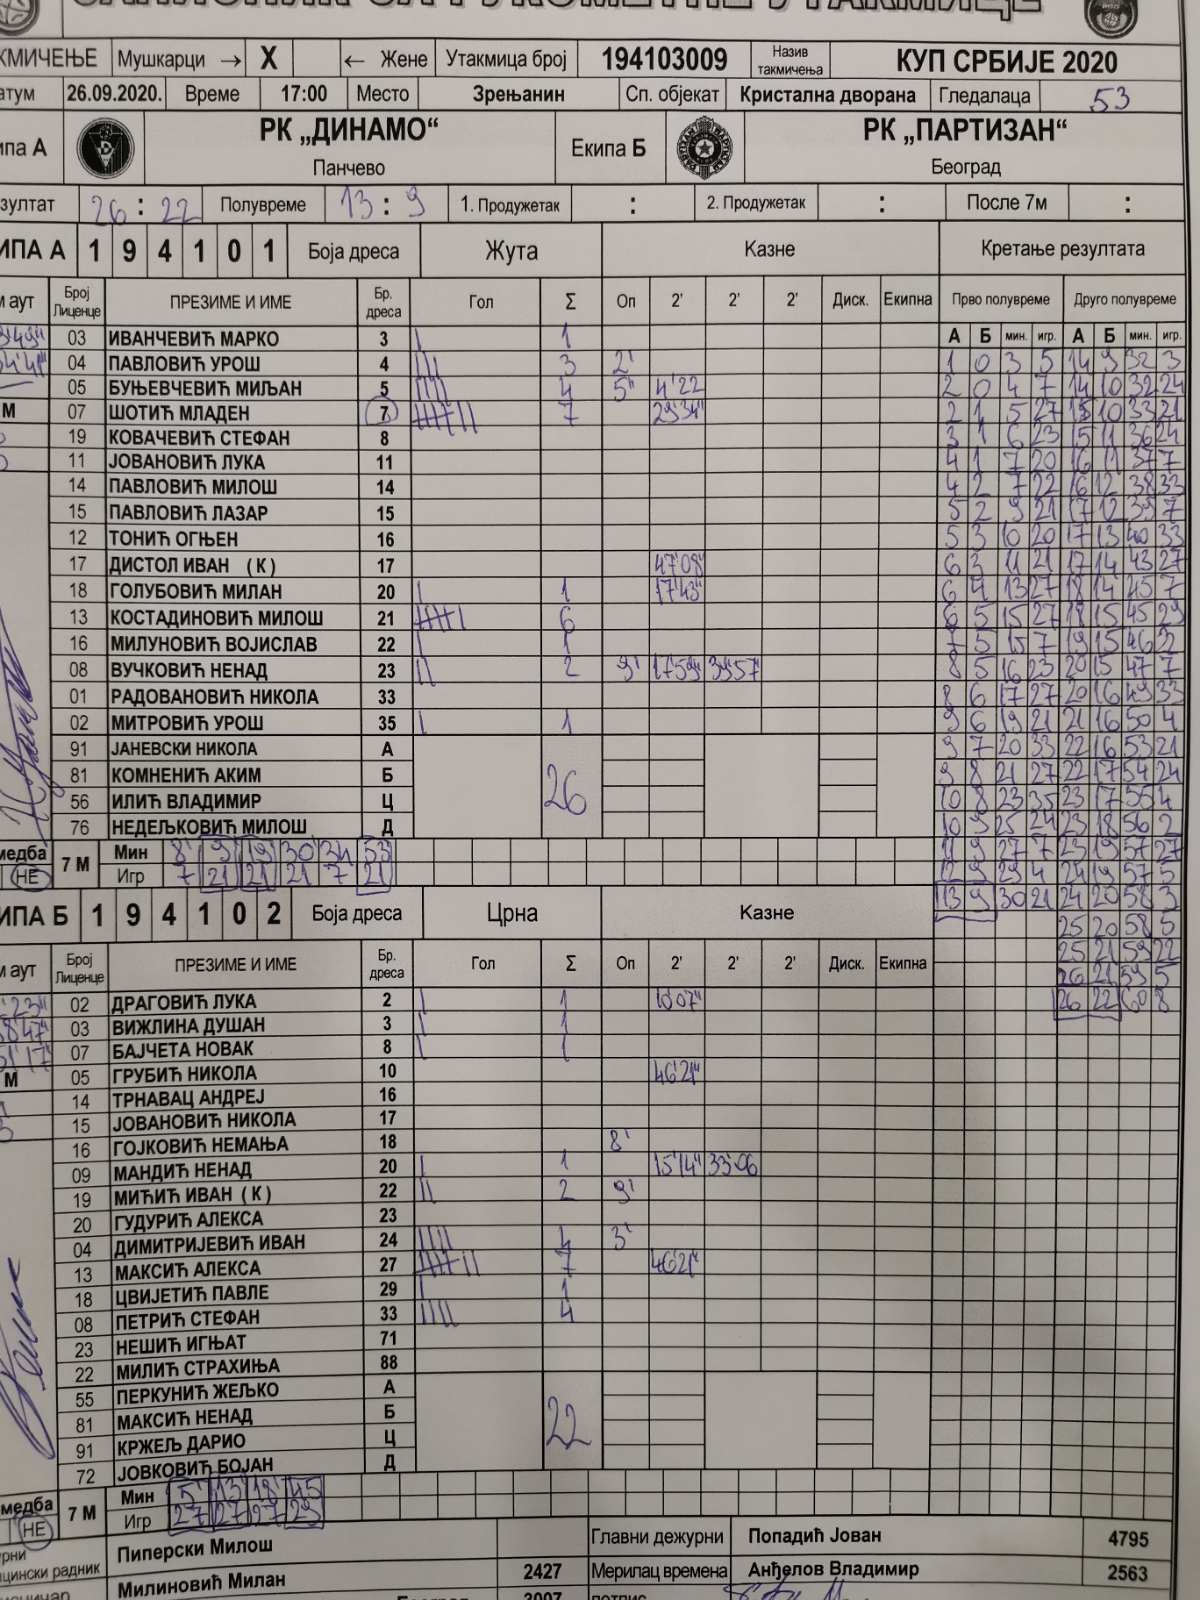 ЗАПИСНИК СА РУКОМЕТНЕ УТАКМИЦЕ
КМИЧЕЊЕ Мушкарци → X ← Жене Утакмица број 194103009 Назив такмичења КУП СРБИЈЕ 2020
атум 26.09.2020. Време 17:00 Место Зрењанин Сп. објекат Кристална дворана Гледалаца 53
ипа А РК „ДИНАМО“ Екипа Б РК „ПАРТИЗАН“
Панчево Београд
зултат 26 : 22 Полувреме 13 : 9 1. Продужетак : 2. Продужетак : После 7м :
ИПА А 1 9 4 1 0 1 Боја дреса Жута Казне Кретање резултата
м аут Број Лиценце ПРЕЗИМЕ И ИМЕ Бр. дреса Гол Σ Оп 2' 2' 2' Диск. Екипна Прво полувреме Друго полувреме
А Б мин. игр. А Б мин. игр.
03 ИВАНЧЕВИЋ МАРКО 3 | 1 1 0 3 5 14 9 32 3
04 ПАВЛОВИЋ УРОШ 4 ||| 3 2' 2 0 4 7 14 10 32 24
05 БУЊЕВЧЕВИЋ МИЉАН 5 |||| 4 5' 4'22 2 1 5 27 15 10 33 21
07 ШОТИЋ МЛАДЕН 7 7 29'34" 3 1 6 23 15 11 36 24
19 КОВАЧЕВИЋ СТЕФАН 8 4 1 7 20 16 11 37 7
11 ЈОВАНОВИЋ ЛУКА 11 4 2 7 22 16 12 38 33
14 ПАВЛОВИЋ МИЛОШ 14 5 2 9 21 17 12 39 7
15 ПАВЛОВИЋ ЛАЗАР 15 5 3 10 20 17 13 40 33
12 ТОНИЋ ОГЊЕН 16 6 3 11 21 17 14 43 27
17 ДИСТОЛ ИВАН ( К ) 17 47'08" 6 4 13 27 18 14 45 7
18 ГОЛУБОВИЋ МИЛАН 20 | 1 17'43" 6 5 15 27 18 15 45 29
13 КОСТАДИНОВИЋ МИЛОШ 21 6 7 5 15 7 19 15 46 22
16 МИЛУНОВИЋ ВОЈИСЛАВ 22 | 1 8 5 16 23 20 15 47 7
08 ВУЧКОВИЋ НЕНАД 23 || 2 9' 17'59" 39'57" 8 6 17 27 20 16 49 33
01 РАДОВАНОВИЋ НИКОЛА 33 9 6 19 21 21 16 50 4
02 МИТРОВИЋ УРОШ 35 | 1 9 7 20 33 22 16 53 21
91 ЈАНЕВСКИ НИКОЛА А 9 8 21 27 22 17 54 24
81 КОМНЕНИЋ АКИМ Б 26 10 8 23 35 23 17 55 4
56 ИЛИЋ ВЛАДИМИР Ц 10 9 25 24 23 18 56 2
76 НЕДЕЉКОВИЋ МИЛОШ Д 11 9 27 7 23 19 57 27
медба 7 М Мин 8' 9 19 30 34 53 12 9 29 4 24 19 57 5
НЕ Игр 7 21 21 21 7 21 13 9 30 21 24 20 58 3
ИПА Б 1 9 4 1 0 2 Боја дреса Црна Казне 25 20 58 5
м аут Број Лиценце ПРЕЗИМЕ И ИМЕ Бр. дреса Гол Σ Оп 2' 2' 2' Диск. Екипна 25 21 59 22
26 21 59 5
26 22 60 8
02 ДРАГОВИЋ ЛУКА 2 | 1 10'07"
03 ВИЖЛИНА ДУШАН 3 | 1
07 БАЈЧЕТА НОВАК 8 | 1
05 ГРУБИЋ НИКОЛА 10 46'21"
14 ТРНАВАЦ АНДРЕЈ 16
15 ЈОВАНОВИЋ НИКОЛА 17
16 ГОЈКОВИЋ НЕМАЊА 18 8'
09 МАНДИЋ НЕНАД 20 | 1 15'14" 33'06
19 МИЋИЋ ИВАН ( К ) 22 || 2 9'
20 ГУДУРИЋ АЛЕКСА 23
04 ДИМИТРИЈЕВИЋ ИВАН 24 |||| 4 3'
13 МАКСИЋ АЛЕКСА 27 7 46'21"
18 ЦВИЈЕТИЋ ПАВЛЕ 29 | 1
08 ПЕТРИЋ СТЕФАН 33 |||| 4
23 НЕШИЋ ИГЊАТ 71
22 МИЛИЋ СТРАХИЊА 88
55 ПЕРКУНИЋ ЖЕЉКО А
81 МАКСИЋ НЕНАД Б 22
91 КРЖЕЉ ДАРИО Ц
72 ЈОВКОВИЋ БОЈАН Д
медба 7 М Мин 5' 13' 18' 45
НЕ Игр 27 27 27 29
рни Пиперски Милош Главни дежурни Попадић Јован 4795
цински радник Милиновић Милан 2427 Мерилац времена Анђелов Владимир 2563